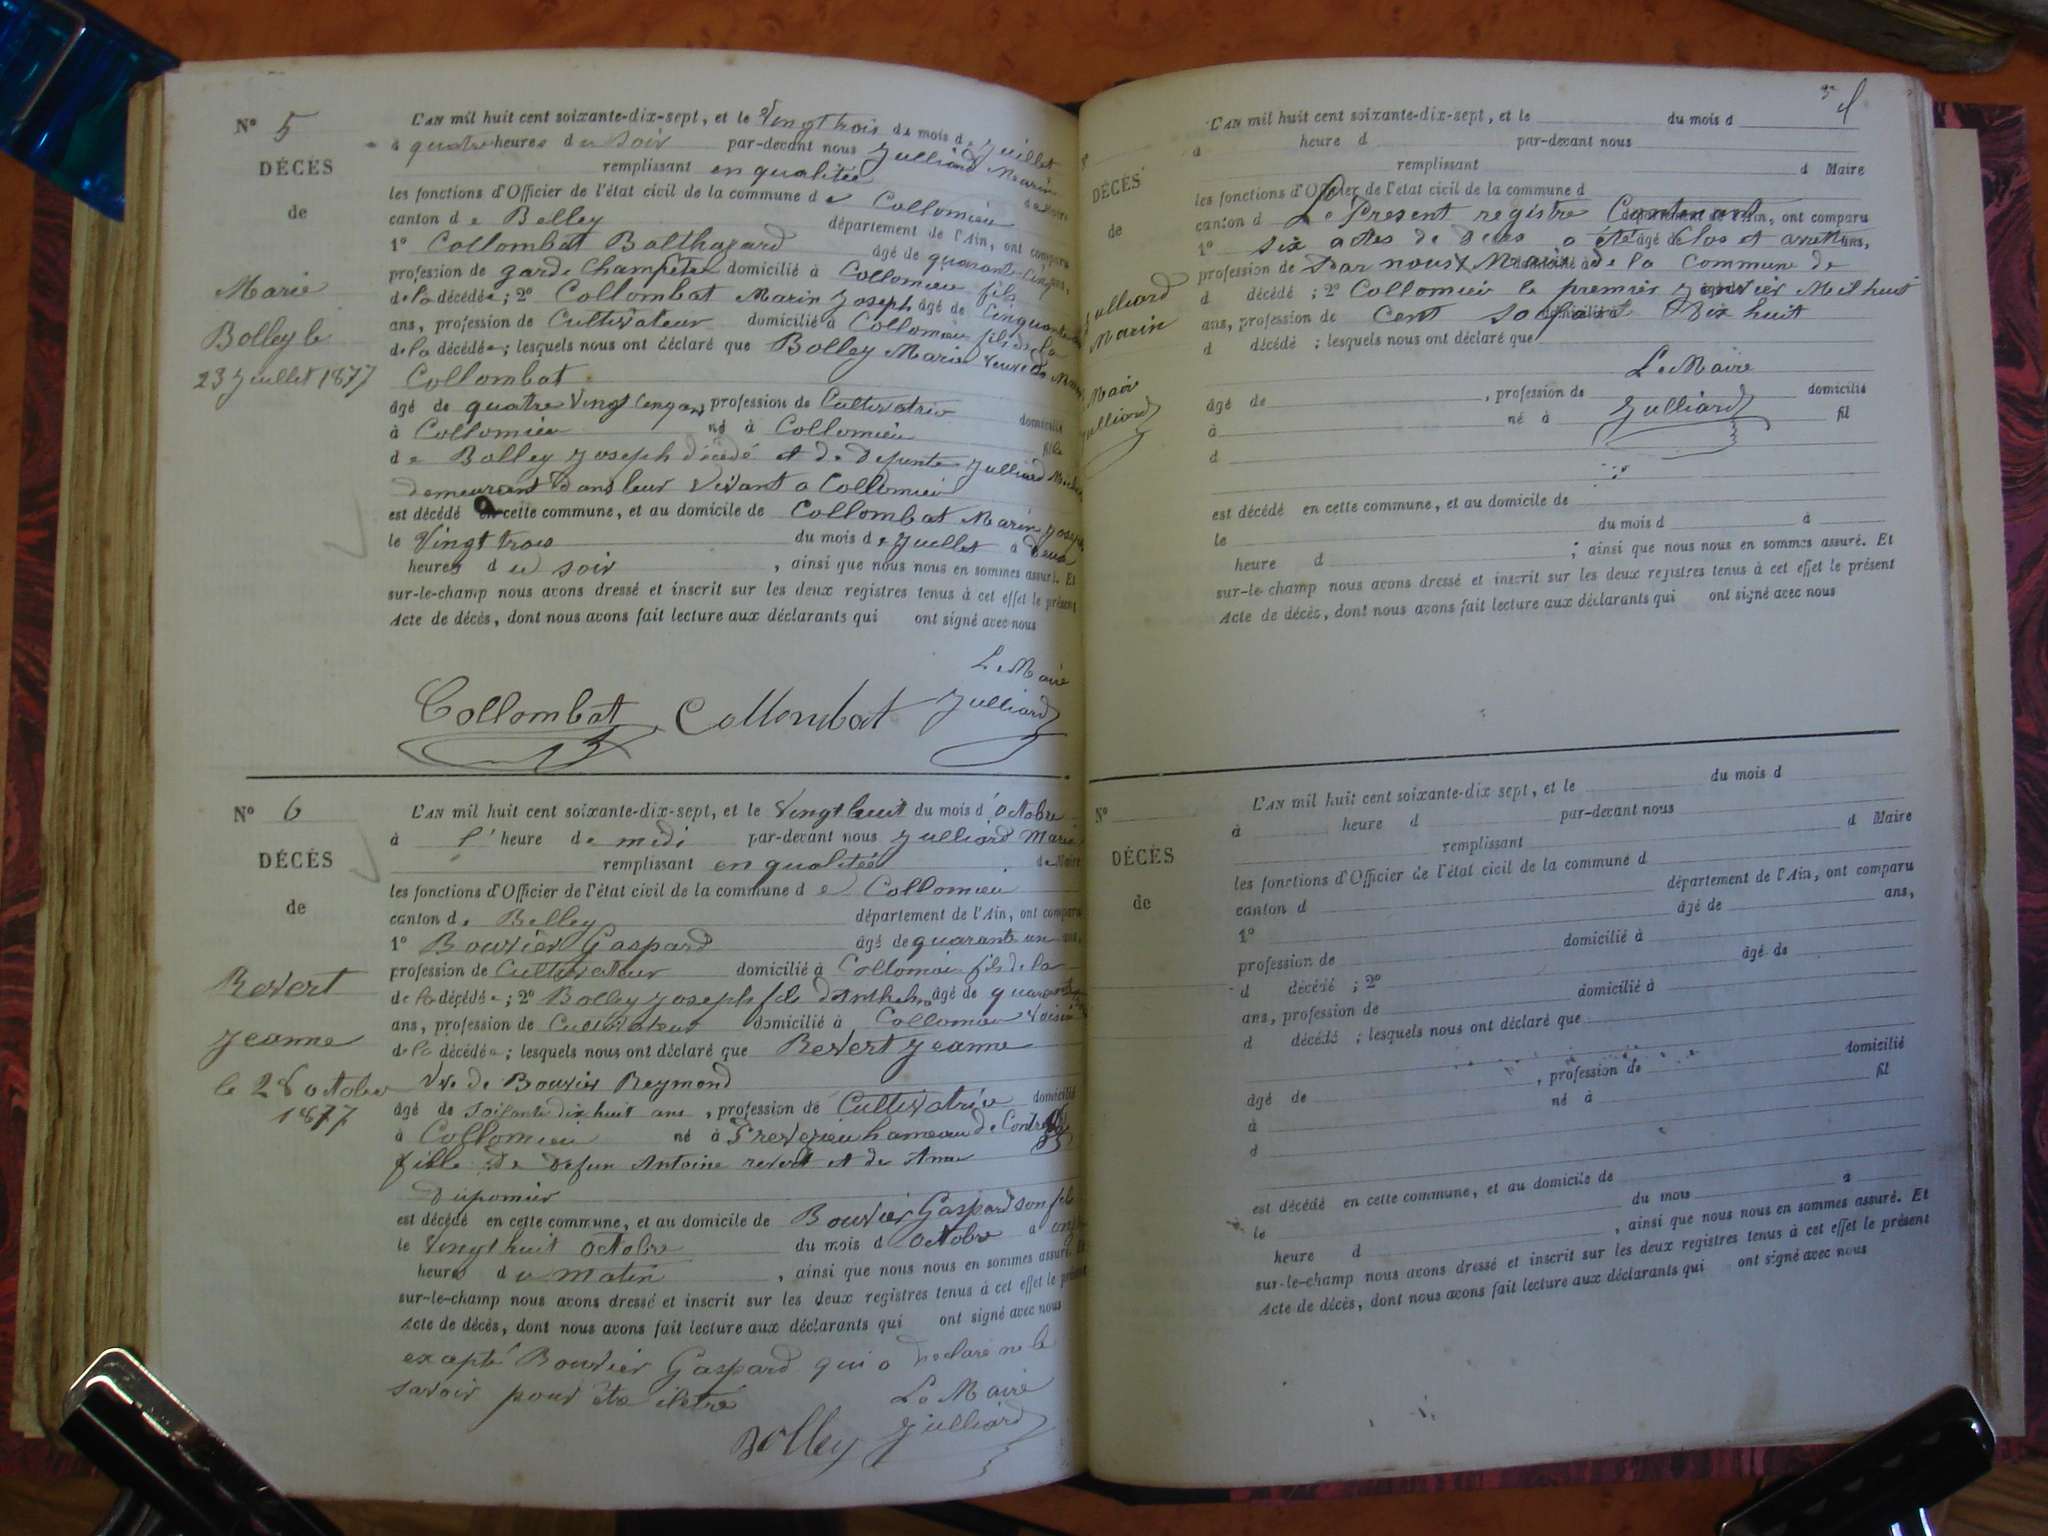 N° 5
DÉCÈS
de
Marie
Bolley le
23 Juillet 1877
L'AN mil huit cent soixante-dix-sept, et le Vingt trois du mois de Juillet
à quatre heures du Soir par-devant nous Julliard Marin
remplissant en qualitée de Maire
les fonctions d'Officier de l'état civil de la commune de Collomieu
canton de Belley département de l'Ain, ont comparu
1° Collombat Balthazard âgé de quarante cinq ans,
profession de garde Champêtre domicilié à Collomieu fils
de la décédée; 2° Collombat Marin Joseph âgé de Cinquante
ans, profession de Cultivateur domicilié à Collomieu fils de la
de la décédée; lesquels nous ont déclaré que Bolley Marie Veuve de
Collombat
âgé de quatre Vingt Cinq ans, profession de Cultivatrice domicilié
à Collomieu né à Collomieu fille
de Bolley Joseph décédé et de Defunte Julliard
demeurant dans leur Vivant a Collomieu
est décédé en cette commune, et au domicile de Collombat Marin Joseph
le Vingt trois du mois de Juillet à deux
heures du soir, ainsi que nous nous en sommes assuré. Et
sur-le-champ nous avons dressé et inscrit sur les deux registres tenus à cet effet le présent
Acte de décès, dont nous avons fait lecture aux déclarants qui ont signé avec nous
Le Maire
Collombat Collombat Julliard
N° 6
DÉCÈS
de
Revert
Jeanne
le 28 octobre
1877
L'AN mil huit cent soixante-dix-sept, et le Vingt huit du mois d'octobre
à l'heure de midi par-devant nous Julliard Marin
remplissant en qualitée de Maire
les fonctions d'Officier de l'état civil de la commune de Collomieu
canton de Belley département de l'Ain, ont comparu
1° Bouvier Gaspard âgé de quarante un ans,
profession de Cultivateur domicilié à Collomieu fils de la
de la décédée; 2° Bolley Joseph fils d'Anthelme âgé de
ans, profession de Cultivateur domicilié à Collomieu Voisin
de la décédée; lesquels nous ont déclaré que Revert Jeanne
Vve de Bouvier Reymond
âgé de soixante dix huit ans, profession de Cultivatrice domicilié
à Collomieu né à Prevezieu hameau de
fille de defun Antoine revert et de Anne
Duponier
est décédé en cette commune, et au domicile de Bouvier Gaspard son fils
le Vingt huit octobre du mois d octobre à onze
heures du matin, ainsi que nous nous en sommes assuré. Et
sur-le-champ nous avons dressé et inscrit sur les deux registres tenus à cet effet le présent
Acte de décès, dont nous avons fait lecture aux déclarants qui ont signé avec nous
exapté Bouvier Gaspard qui a Declaré ne le
savoir pour être iletré
Le Maire
Bolley Julliard
DÉCÈS
de
Julliard
Marin
Maire
Julliard
L'AN mil huit cent soixante-dix-sept, et le du mois d
à heure d par-devant nous
remplissant d Maire
les fonctions d'Officier de l'état civil de la commune d
canton d Le Present registre Contenant département de l'Ain, ont comparu
1° six actes de Deces a été clos et arretté âgé de ans,
profession de Par nous Maire de la Commune de domicilié à
d décédé; 2° Collomieu le premier Janvier Mil huit âgé de
ans, profession de Cent soixant Dix huit domicilié à
d décédé; lesquels nous ont déclaré que
Le Maire
âgé de , profession de domicilié
à né à Julliard fil
d
est décédé en cette commune, et au domicile de
le du mois d à
heure d ; ainsi que nous nous en sommes assuré. Et
sur-le-champ nous avons dressé et inscrit sur les deux registres tenus à cet effet le présent
Acte de décès, dont nous avons fait lecture aux déclarants qui ont signé avec nous
N°
DÉCÈS
de
L'AN mil huit cent soixante-dix sept, et le du mois d
à heure d par-devant nous
remplissant d Maire
les fonctions d'Officier de l'état civil de la commune d
canton d département de l'Ain, ont comparu
1° âgé de ans,
profession de domicilié à
d décédé; 2° âgé de
ans, profession de domicilié à
d décédé; lesquels nous ont déclaré que
âgé de , profession de domicilié
à né à fil
d
est décédé en cette commune, et au domicile de
le du mois à
heure d , ainsi que nous nous en sommes assuré. Et
sur-le-champ nous avons dressé et inscrit sur les deux registres tenus à cet effet le présent
Acte de décès, dont nous avons fait lecture aux déclarants qui ont signé avec nous